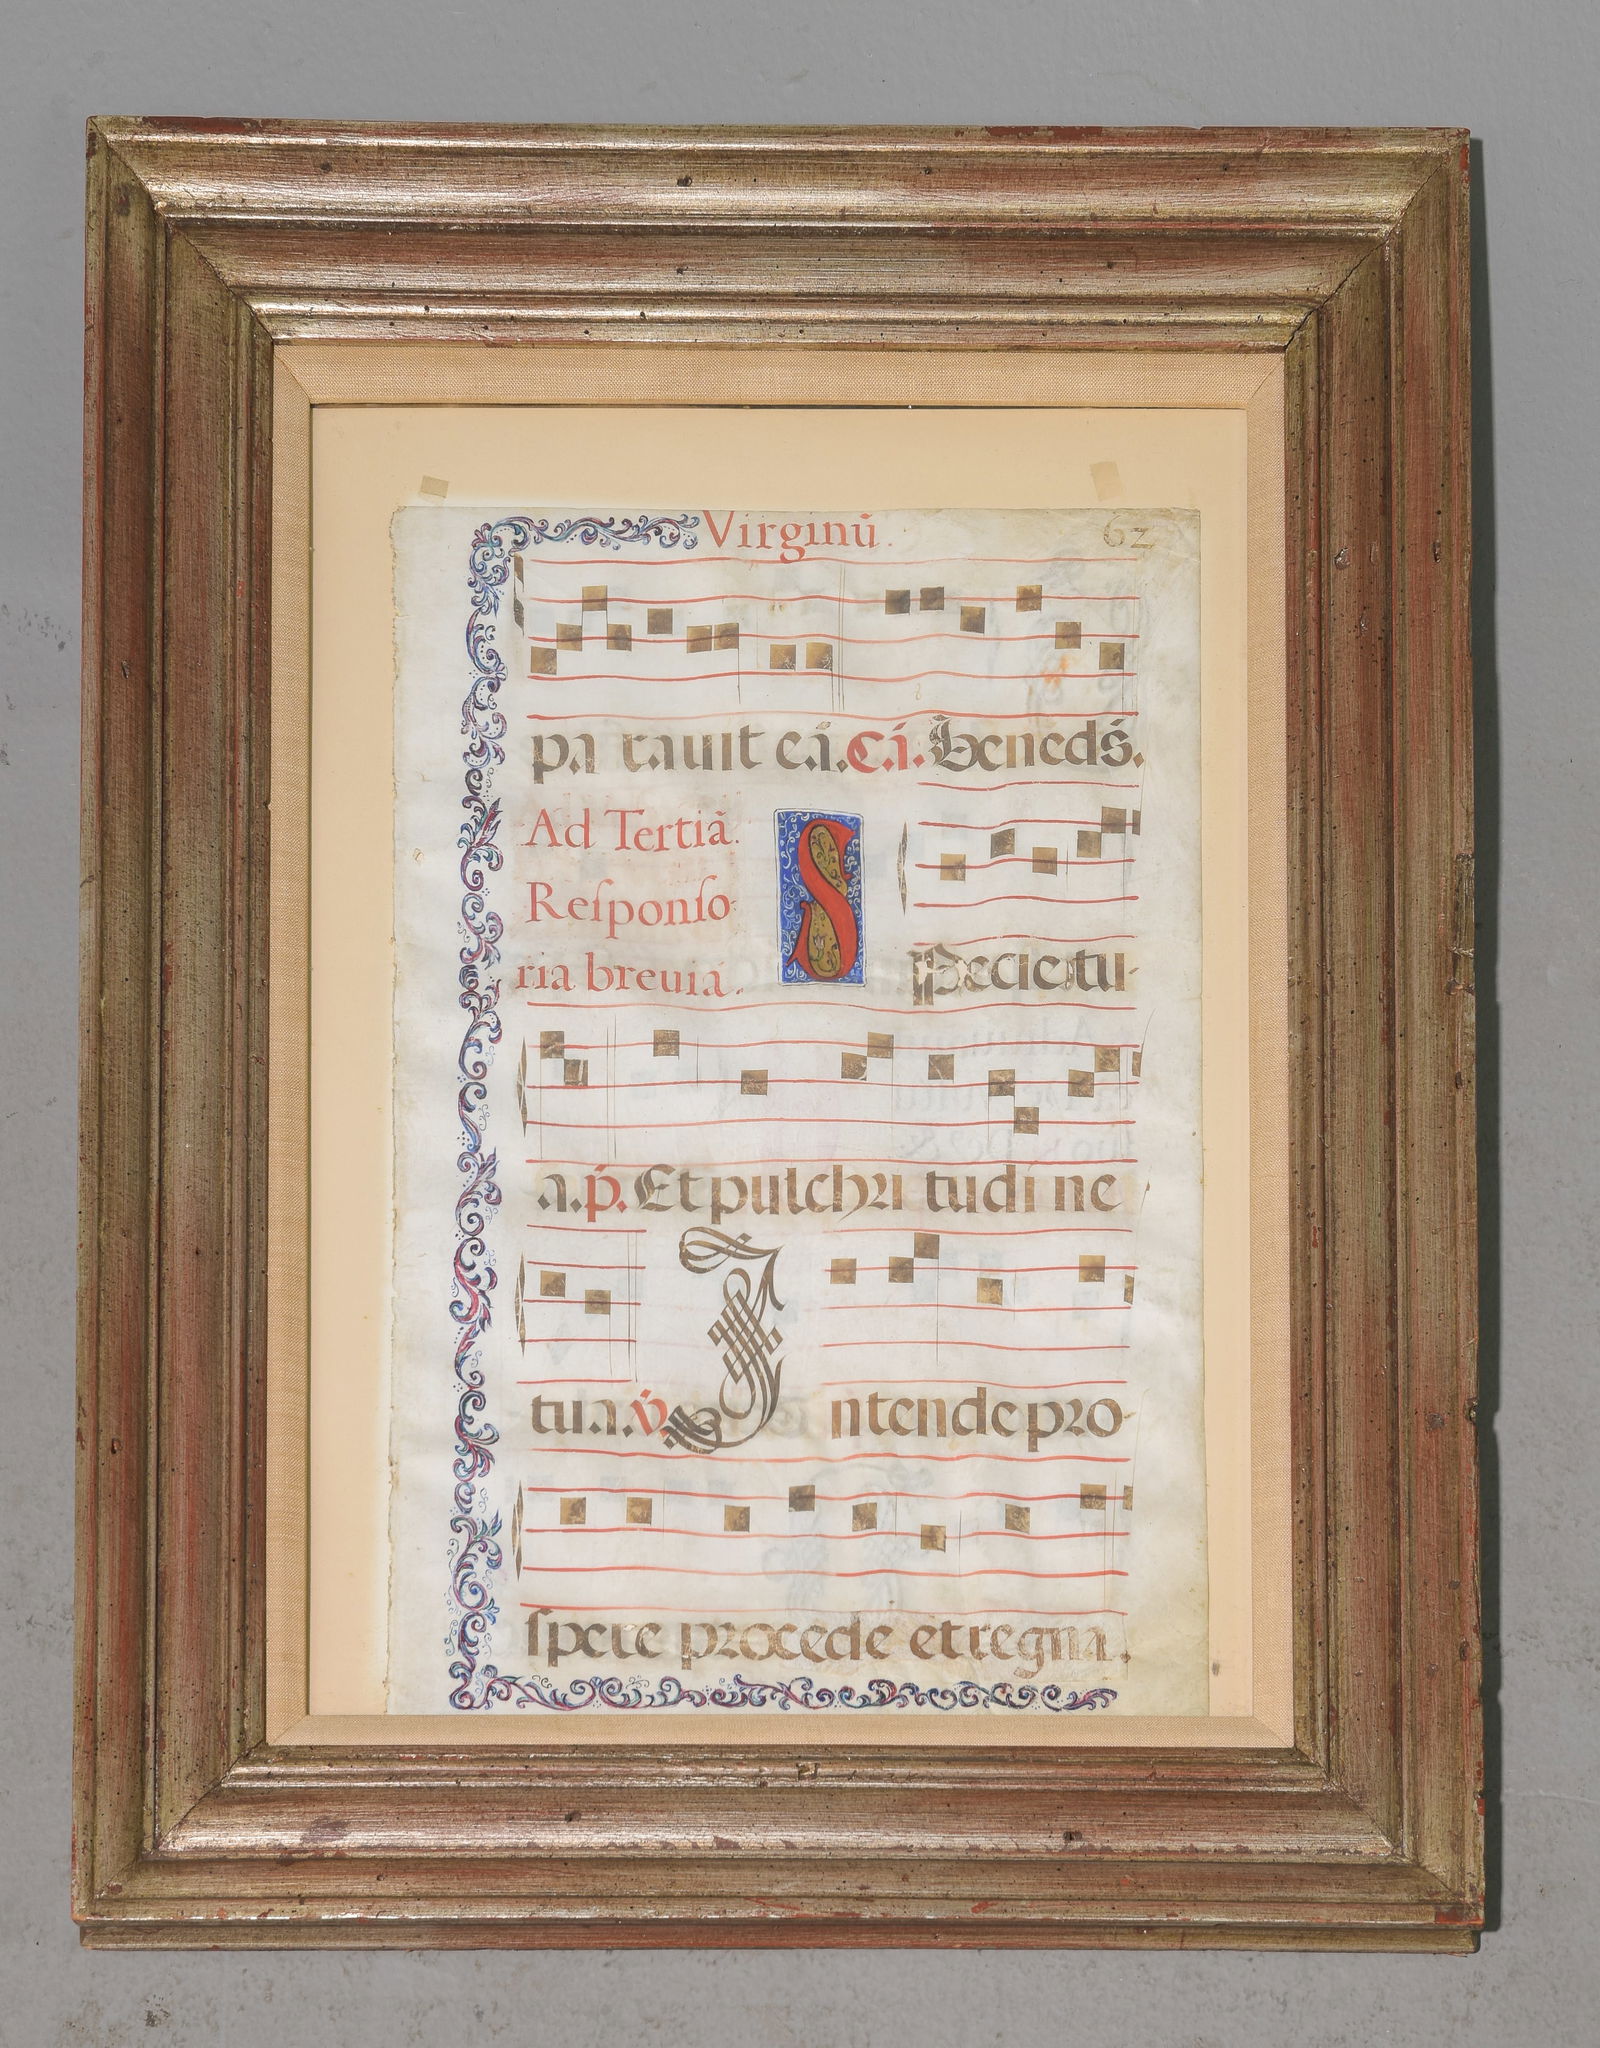 Virginũ. 62
pa rauit eã. Cã. Beneds̃.
Ad Tertiã.
Reſponſo
ria breuia.
Specie tu-
a. p̃. Et pulchri tudi ne
tua. ṽ. Intende pro-
ſpere procede et regna.